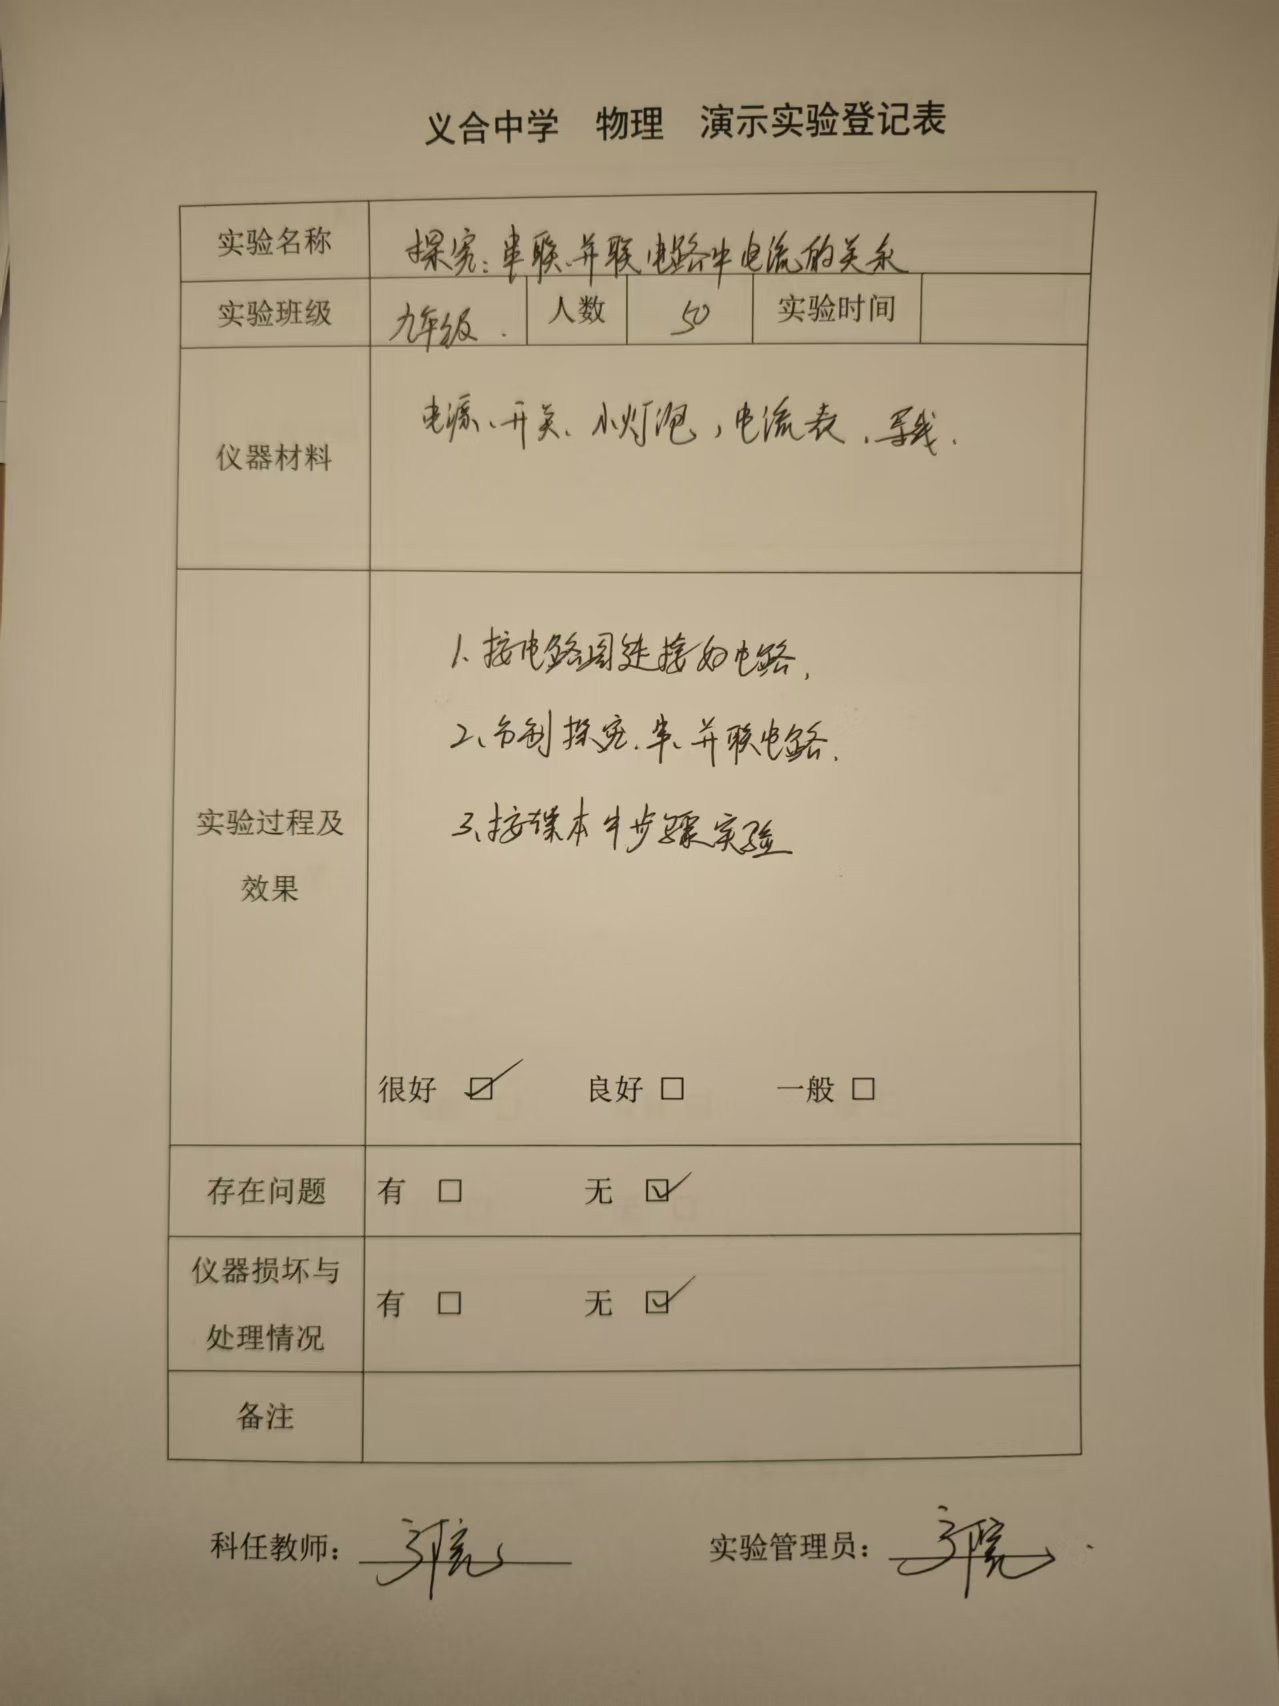 义合中学 物理 演示实验登记表
实验名称 探究:串联、并联电路中电流的关系
实验班级 九年级. 人数 50 实验时间
仪器材料 电源、开关、小灯泡,电流表、导线.
1、按电路图连接好电路,
2、分别探究、串、并联电路.
3、按课本中步骤实验
实验过程及
效果
很好 ☑ 良好 □ 一般 □
存在问题 有 □ 无 ☑
仪器损坏与
处理情况
有 □ 无 ☑
备注
科任教师:
实验管理员: